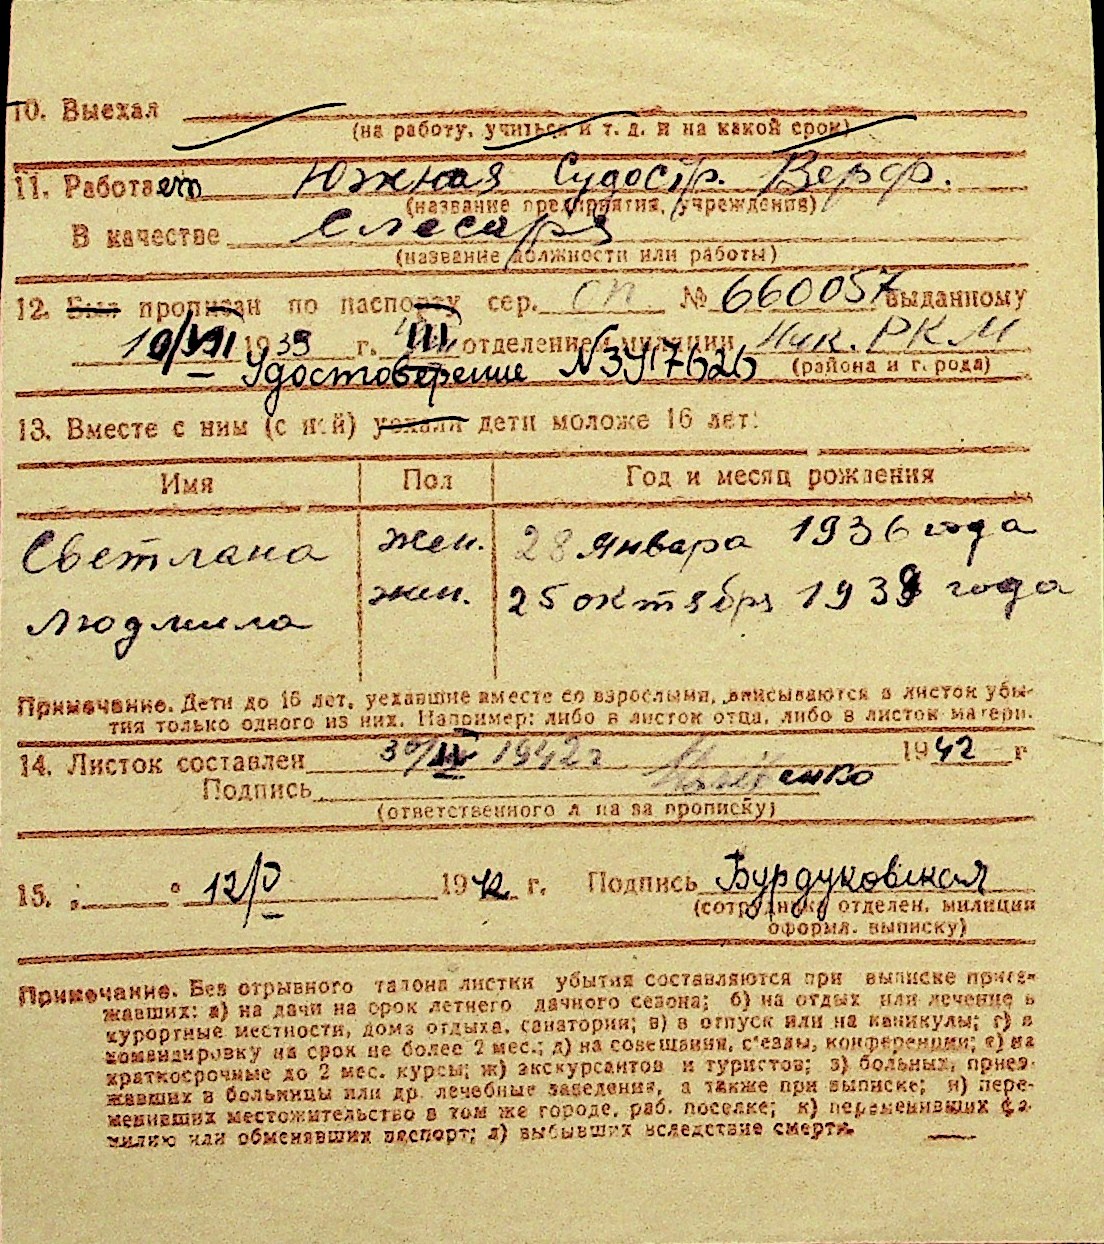 10. Выехал
(на работу, учиться и т. д. и на какой срок)
11. Работает Южная Судостр. Верф.
(название предприятия, учреждения)
В качестве Слесаря
(название должности или работы)
12. Был прописан по паспорту сер. ОП № 660057 выданному
19/VII 1939 г. III отделением милиции Ник. РКМ
Удостоверение № 3417626 (района и города)
13. Вместе с ним (с ней) уехали дети моложе 16 лет:
Имя Пол Год и месяц рождения
Светлана жен. 28 января 1936 года
Людмила жен. 25 октября 1939 года
Примечание. Дети до 16 лет, уехавшие вместе со взрослыми, вписываются в листок убы-
тия только одного из них. Например: либо в листок отца, либо в листок матери.
14. Листок составлен 30/IV 1942 г 1942 г
Подпись
(ответственного л на за прописку)
15. " 12/V 1942 г. Подпись Бурдуковская
(сотрудника отделен. милиции
оформл. выписку)
Примечание. Без отрывного талона листки убытия составляются при выписке приез-
жавших: а) на дачи на срок летнего дачного сезона; б) на отдых или лечение в
курортные местности, дома отдыха, санатории; в) в отпуск или на каникулы; г) в
командировку на срок не более 2 мес.; д) на совещания, с'езды, конференции; е) на
краткосрочные до 2 мес. курсы; ж) экскурсантов и туристов; з) больных, приез-
жавших в больницы или др. лечебные заведения, а также при выписке; и) пере-
менивших местожительство в том же городе, раб. поселке; к) переменивших фа-
милию или обменявших паспорт; л) выбывших вследствие смерти.